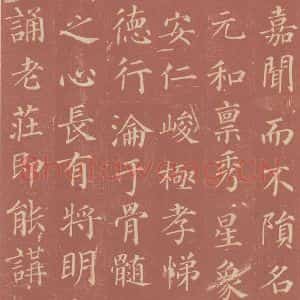 嘉聞而不隕名
元和禀秀星象
安仁峻極孝悌
德行淪于骨髓
之心長有將明
誦老莊即能講